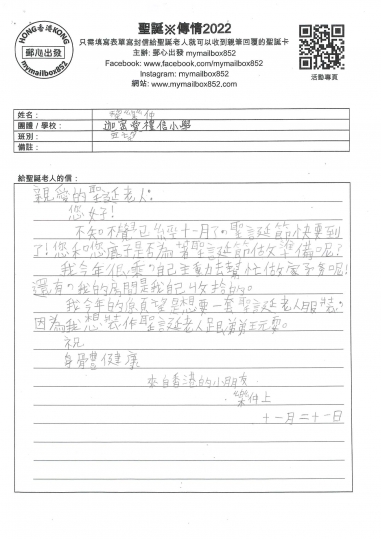 HONG香港KONG
郵心出發
mymailbox852
聖誕※傳情2022
只需填寫表單寫封信給聖誕老人就可以收到親筆回覆的聖誕卡
主辦: 郵心出發 mymailbox852
Facebook: www.facebook.com/mymailbox852
Instagram: mymailbox852
網站: www.mymailbox852.com
活動專頁
姓名:
樂仲
團體 / 學校:
迦密愛禮信小學
班別:
備註:
給聖誕老人的信:
親愛的聖誕老人:
您好!
不知不覺已經至十一月了。聖誕節快要到
了!您和您鹿子是否為著聖誕節做準備呢?
我今年很乖,自己主動去幫忙做家務呢!
還有,我的房間是我自己收拾的。
我今年的願望是想要一套聖誕老人服裝。
因為我想裝作聖誕老人跟弟弟玩耍。
祝
身體健康
來自香港的小朋友
樂仲上
十一月二十一日